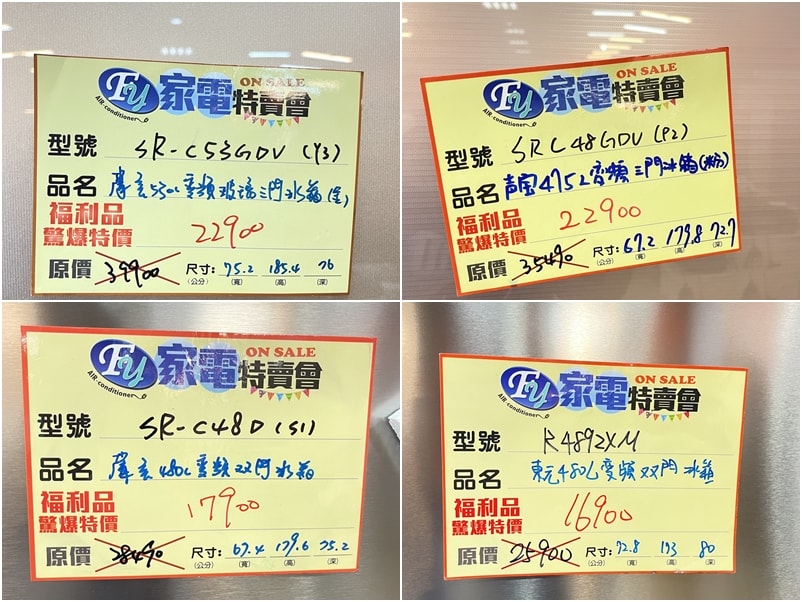 Fy 家電特賣會 ON SALE
AIR-conditioner
型號 SR-C53GDV (Y3)
品名 聲宝530L變頻玻璃三門冰箱
福利品
驚爆特價 22900
原價 39900 尺寸: 75.2 185.4 76
(公分) (寬) (高) (深)
Fy 家電特賣會 ON SALE
AIR-conditioner
型號 SRC48GDV (P2)
品名 声宝475L變頻三門冰箱(粉)
福利品
驚爆特價 22900
原價 35490 尺寸: 67.2 179.8 72.7
(公分) (寬) (高) (深)
Fy 家電特賣會 ON SALE
AIR-conditioner
型號 SR-C48D (S1)
品名 聲宝480L變頻双門冰箱
福利品
驚爆特價 17900
原價 28490 尺寸: 67.4 179.6 75.2
(公分) (寬) (高) (深)
Fy 家電特賣會 ON SALE
AIR-conditioner
型號 R4892XM
品名 東元480L變頻双門冰箱
福利品
驚爆特價 16900
原價 25900 尺寸: 72.8 173 80
(公分) (寬) (高) (深)